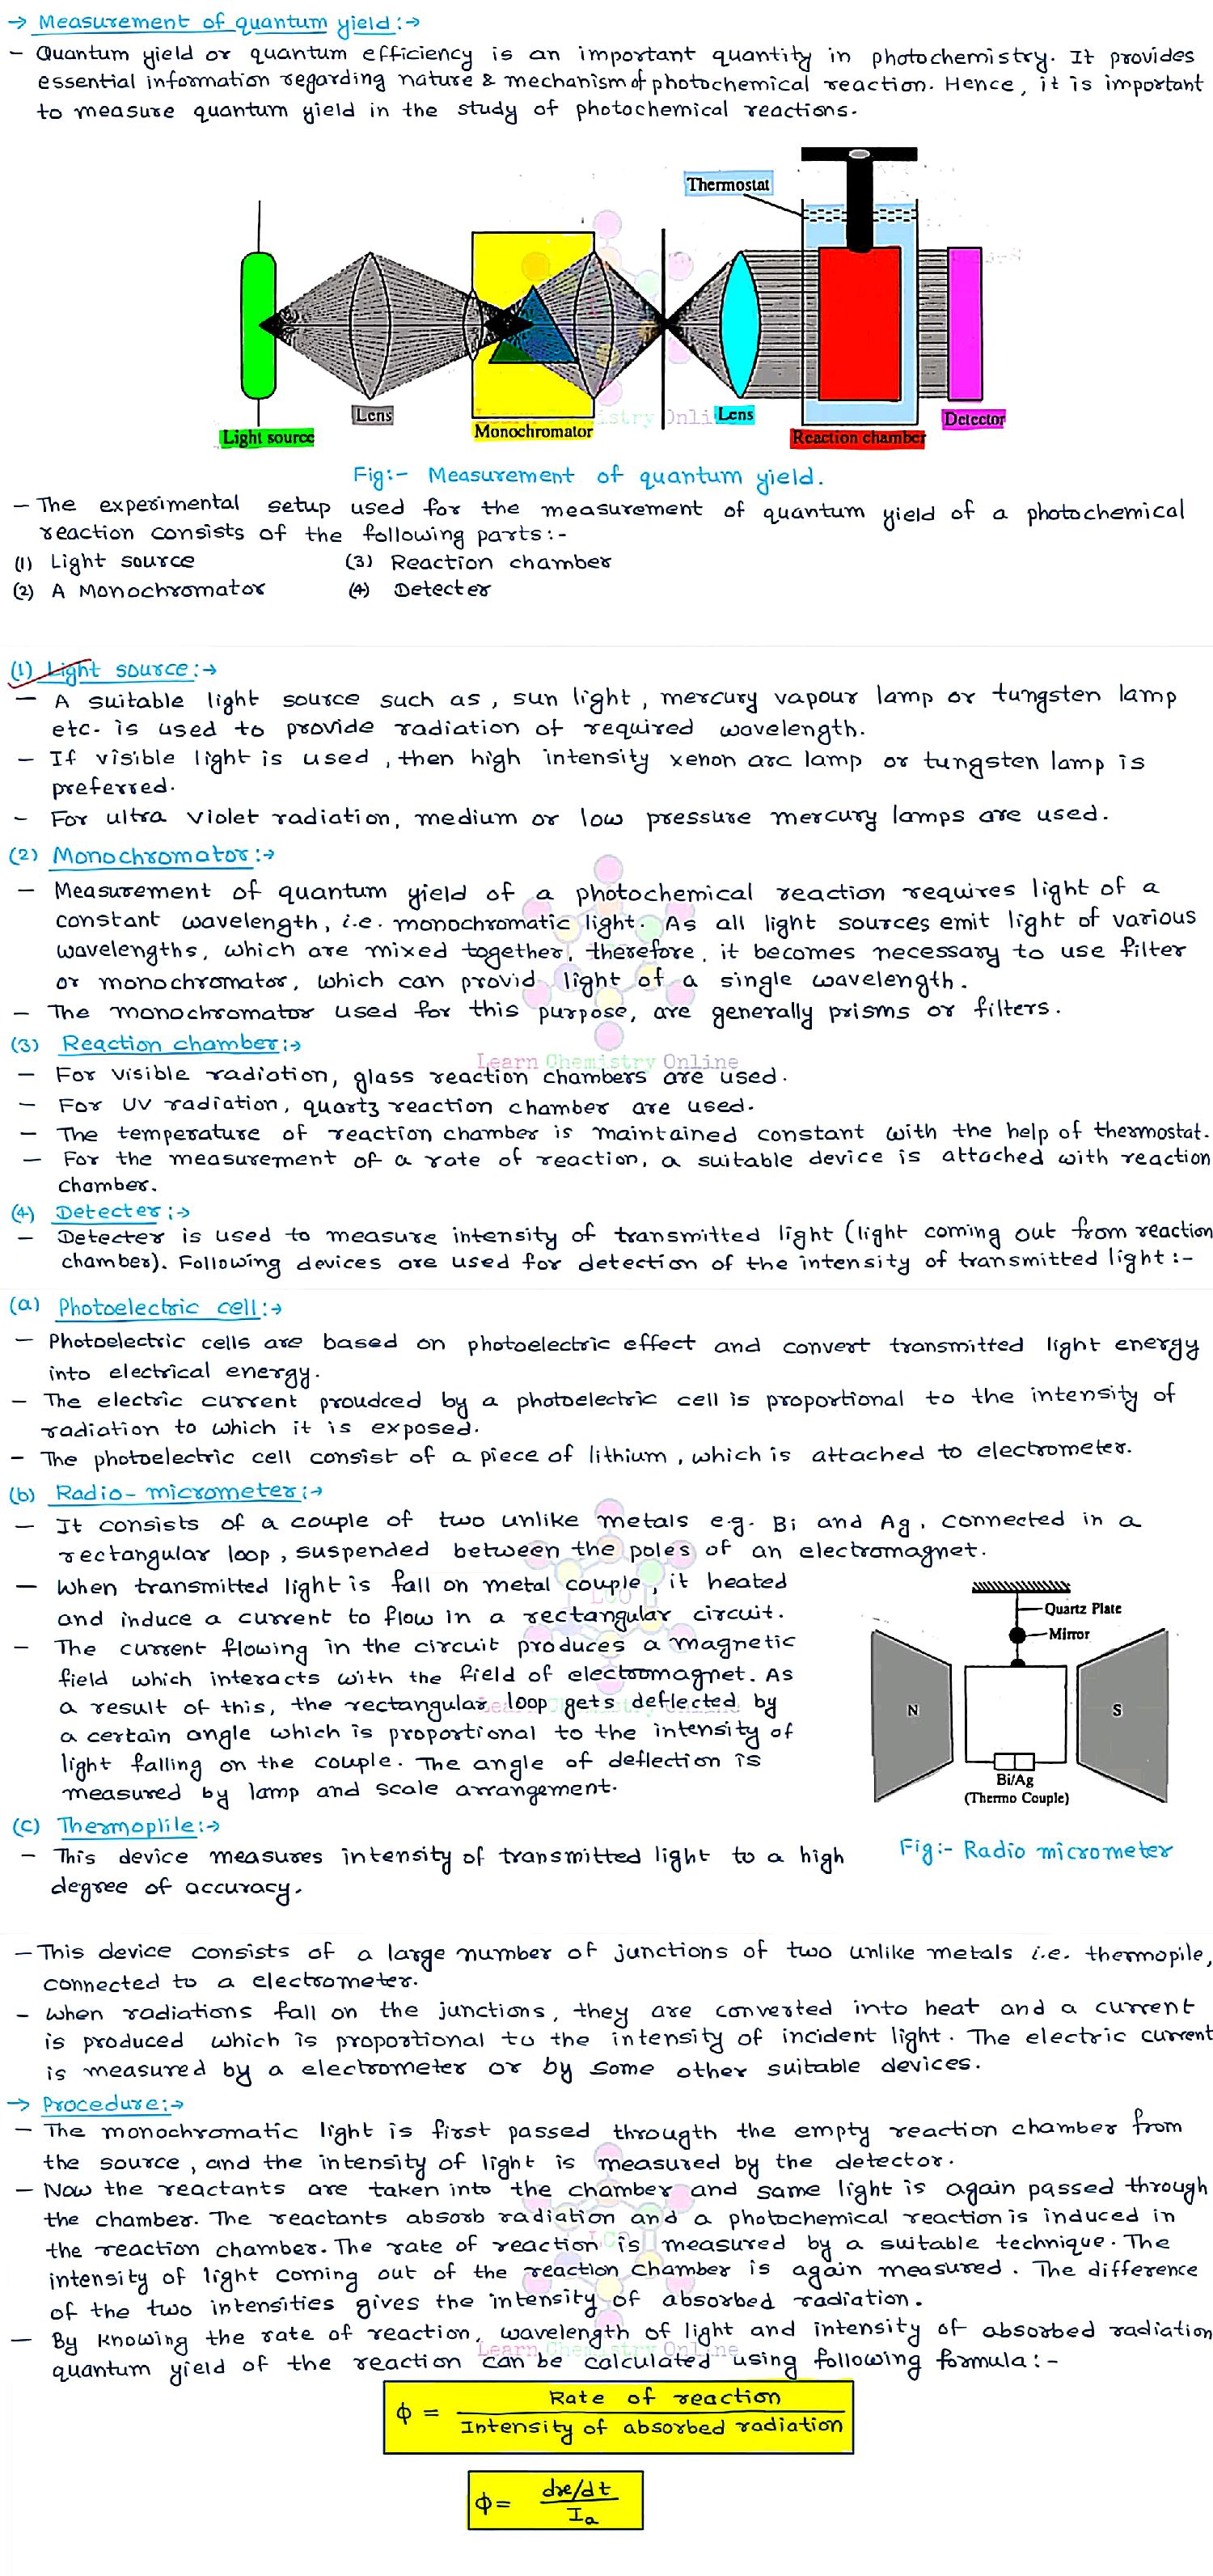 → Measurement of quantum yield :→
– Quantum yield or quantum efficiency is an important quantity in photochemistry. It provides
essential information regarding nature & mechanism of photochemical reaction. Hence, it is important
to measure quantum yield in the study of photochemical reactions.
Thermostat
Lens
Light source
Monochromator
Lens
Reaction chamber
Detector
Fig:- Measurement of quantum yield.
– The experimental setup used for the measurement of quantum yield of a photochemical
reaction consists of the following parts:-
(1) Light source (3) Reaction chamber
(2) A Monochromator (4) Detecter
(1) Light source :→
– A suitable light source such as, sun light, mercury vapour lamp or tungsten lamp
etc. is used to provide radiation of required wavelength.
– If visible light is used, then high intensity xenon arc lamp or tungsten lamp is
preferred.
– For ultra violet radiation, medium or low pressure mercury lamps are used.
(2) Monochromator :→
– Measurement of quantum yield of a photochemical reaction requires light of a
constant wavelength, i.e. monochromatic light. As all light sources emit light of various
wavelengths, which are mixed together, therefore, it becomes necessary to use filter
or monochromator, which can provid light of a single wavelength.
– The monochromator used for this purpose, are generally prisms or filters.
(3) Reaction chamber :→
Learn Chemistry Online
– For visible radiation, glass reaction chambers are used.
– For UV radiation, quartz reaction chamber are used.
– The temperature of reaction chamber is maintained constant with the help of thermostat.
– For the measurement of a rate of reaction, a suitable device is attached with reaction
chamber.
(4) Detecter :→
– Detecter is used to measure intensity of transmitted light (light coming out from reaction
chamber). Following devices are used for detection of the intensity of transmitted light :-
(a) Photoelectric cell :→
– Photoelectric cells are based on photoelectric effect and convert transmitted light energy
into electrical energy.
– The electric current proudced by a photoelectric cell is proportional to the intensity of
radiation to which it is exposed.
– The photoelectric cell consist of a piece of lithium, which is attached to electrometer.
(b) Radio-micrometer :→
– It consists of a couple of two unlike metals e.g. Bi and Ag, connected in a
rectangular loop, suspended between the poles of an electromagnet.
– When transmitted light is fall on metal couple, it heated
and induce a current to flow in a rectangular circuit.
– The current flowing in the circuit produces a magnetic
field which interacts with the field of electromagnet. As
a result of this, the rectangular loop gets deflected by
a certain angle which is proportional to the intensity of
light falling on the couple. The angle of deflection is
measured by lamp and scale arrangement.
Quartz Plate
Mirror
N
S
Bi/Ag
(Thermo Couple)
Fig:- Radio micrometer
(c) Thermoplile :→
– This device measures intensity of transmitted light to a high
degree of accuracy.
– This device consists of a large number of junctions of two unlike metals i.e. thermopile,
connected to a electrometer.
– When radiations fall on the junctions, they are converted into heat and a current
is produced which is proportional to the intensity of incident light. The electric current
is measured by a electrometer or by some other suitable devices.
→ Procedure :→
– The monochromatic light is first passed througth the empty reaction chamber from
the source, and the intensity of light is measured by the detector.
– Now the reactants are taken into the chamber and same light is again passed through
the chamber. The reactants absorb radiation and a photochemical reaction is induced in
the reaction chamber. The rate of reaction is measured by a suitable technique. The
intensity of light coming out of the reaction chamber is again measured. The difference
of the two intensities gives the intensity of absorbed radiation.
– By knowing the rate of reaction, wavelength of light and intensity of absorbed radiation
Learn Chemistry Online
quantum yield of the reaction can be calculated using following formula :-
ϕ = Rate of reaction / Intensity of absorbed radiation
ϕ = dx/dt / Ia